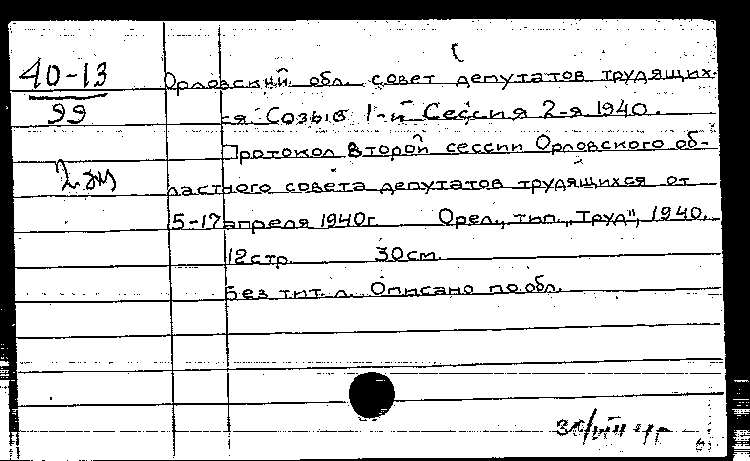 40-13
99
2 эк
Орловский обл. совет депутатов трудящих-
ся Созыв 1-й Сессия 2-я 1940.
Протокол второй сессии Орловского об-
ластного совета депутатов трудящихся от
15-17 апреля 1940г. Орел, тип. „Труд", 1940.
12 стр. 30 см.
Без тит. л. Описано по обл.